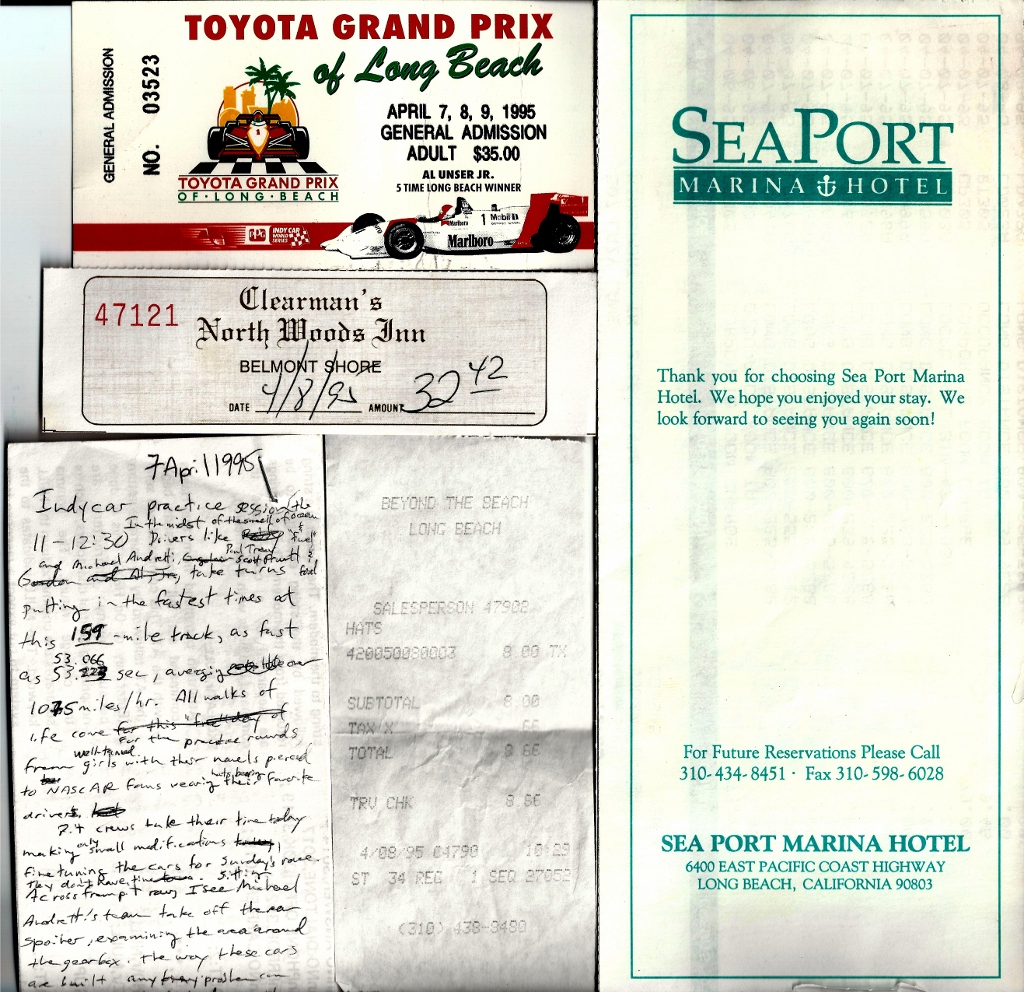 GENERAL ADMISSION
NO. 03523
TOYOTA GRAND PRIX
of Long Beach
APRIL 7, 8, 9, 1995
GENERAL ADMISSION
ADULT $35.00
AL UNSER JR.
5 TIME LONG BEACH WINNER
TOYOTA GRAND PRIX
OF·LONG·BEACH
PPG INDY CAR WORLD SERIES
Marlboro 1 Mobil 1
Marlboro
47121
Clearman's
North Woods Inn
BELMONT SHORE
DATE 4/8/95 AMOUNT 32 42
7 April 1995
Indycar practice session (the
In the midst of the smell of ocean &
11-12:30 Drivers like "Fuel"
and Michael Andretti, Paul Tracy Scott Pruett &
take turns
putting in the fastest times at
this 1.59-mile track, as fast
53.066
as sec, averaging over
107.5 miles/hr. All walks of
life come for this "free" day of
for the practice rounds
well-tanned
from girls with their navels pierced
to NASCAR fans wearing their favorite
drivers,
Pit crews take their time today
making only small modifications
fine tuning the cars for Sunday's race.
They don't have time. Sitting
Across from pit row, I see Michael
Andretti's team take off the rear
spoiler, examining the area around
the gearbox. The way these cars
are built any problem can
BEYOND THE BEACH
LONG BEACH
SALESPERSON 47908
HATS
420050080003 8.00 TX
SUBTOTAL 8.00
TAX X .66
TOTAL 8.66
TRV CHK 8.66
4/08/95 04790 10:29
ST 34 REG 1 SEQ 27052
(310) 438-9490
SEAPORT
MARINA HOTEL
Thank you for choosing Sea Port Marina
Hotel. We hope you enjoyed your stay. We
look forward to seeing you again soon!
For Future Reservations Please Call
310-434-8451 · Fax 310-598-6028
SEA PORT MARINA HOTEL
6400 EAST PACIFIC COAST HIGHWAY
LONG BEACH, CALIFORNIA 90803